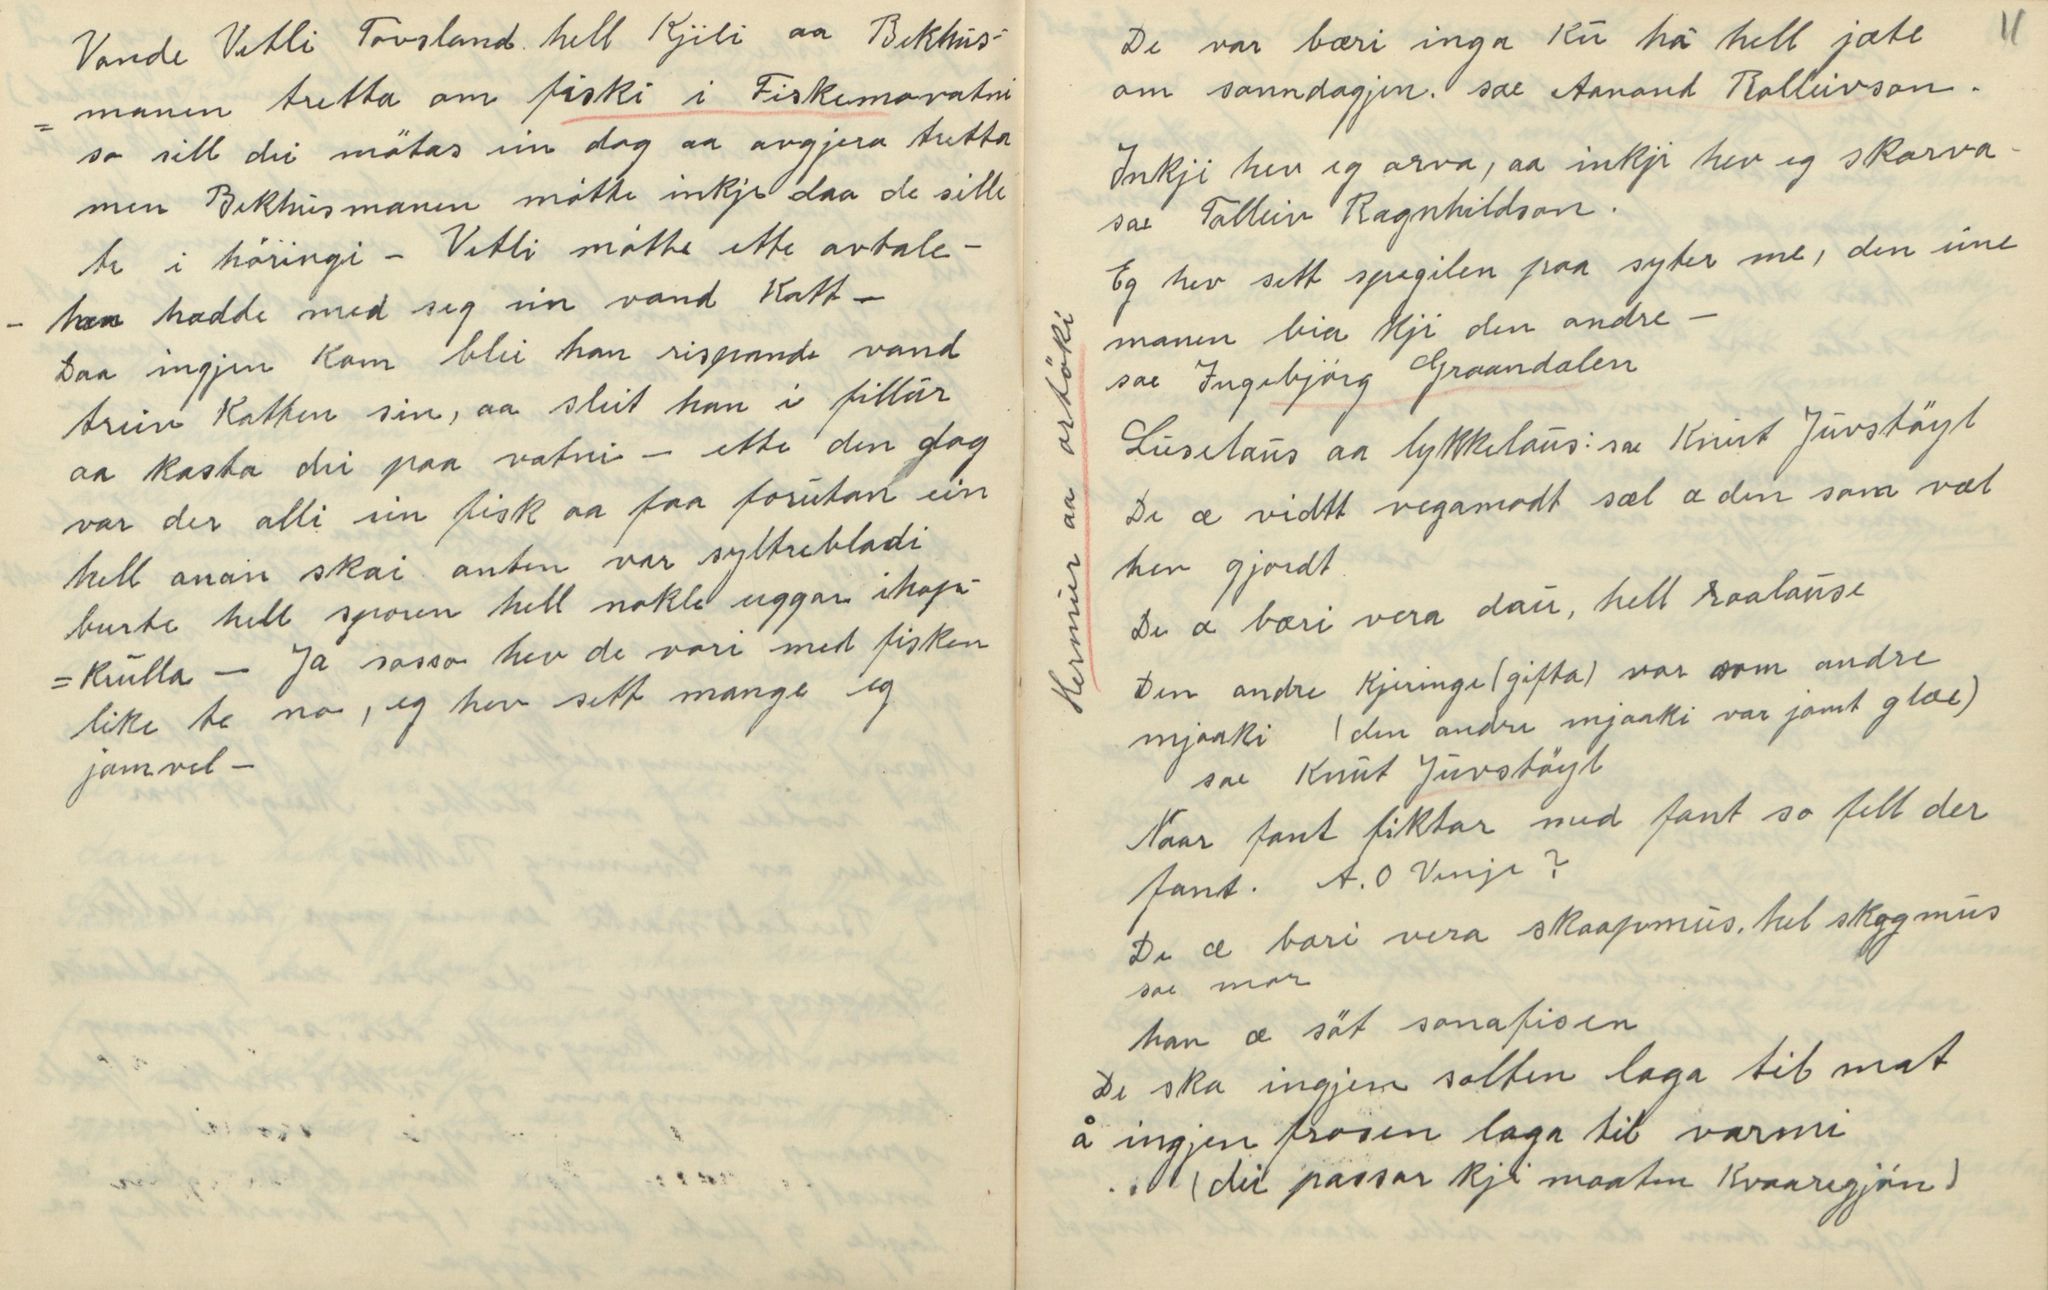 Vonde Vetli Tovsland hell Kjili aa Bekhus-
= manen tretta om fiski i Fiskemovatni
so sill dei mötas ein dag aa avgjera tretta
men Bekhusmanen mötte inkje daa de sille
te i höringi - Vetli mötte ette avtale -
- han hadde med seg ein vand Katt -
Daa ingjen Kom blei han rispande vand
treiv Katten sin, aa sleit han i fillur
aa kasta dei paa vatni - ette den dag
var der alli ein fisk aa faa forutan ein
hell anain skai anten var syltrebladi
burte hell sporen hell nokle uggar ihop-
= krulla - Ja sosso hev de vori med fisken
like te no, eg hev sett mange eg
jamvel -
11
De var bæri inga Ku há hell jæte
om sonndagjen. sae Aanond Rolleivson.
Inkji hev eg arva, aa inkji hev eg skarva -
sae Tolleiv Ragnhildson.
Eg hev sett spegilen paa syter me, den eine
manen bia kji den andre -
sae Ingebjörg Graandalen
Luselaus aa lykkelaus: sae Knut Juvstöyl
De æ vidtt vegamodt sæl æ den som væl
hev gjordt
De æ bæri vera dau, hell raalause
Den andre Kjeringe (gifta) var som andre
mjaaki (den andre mjaaki var jamt glæe)
sae Knut Juvstöyl
Naar fant fiktar med fant so fell der
fant. A. O Vinje ?
De æ bæri vera skaapmus, hel skogmus
sae mor
han æ söt sonafisen
De ska ingjen solten laga til mat
å ingjen frosen laga til varmi
(dei passar kji maaten Kvaaregjón)
Hermur aa ortöki